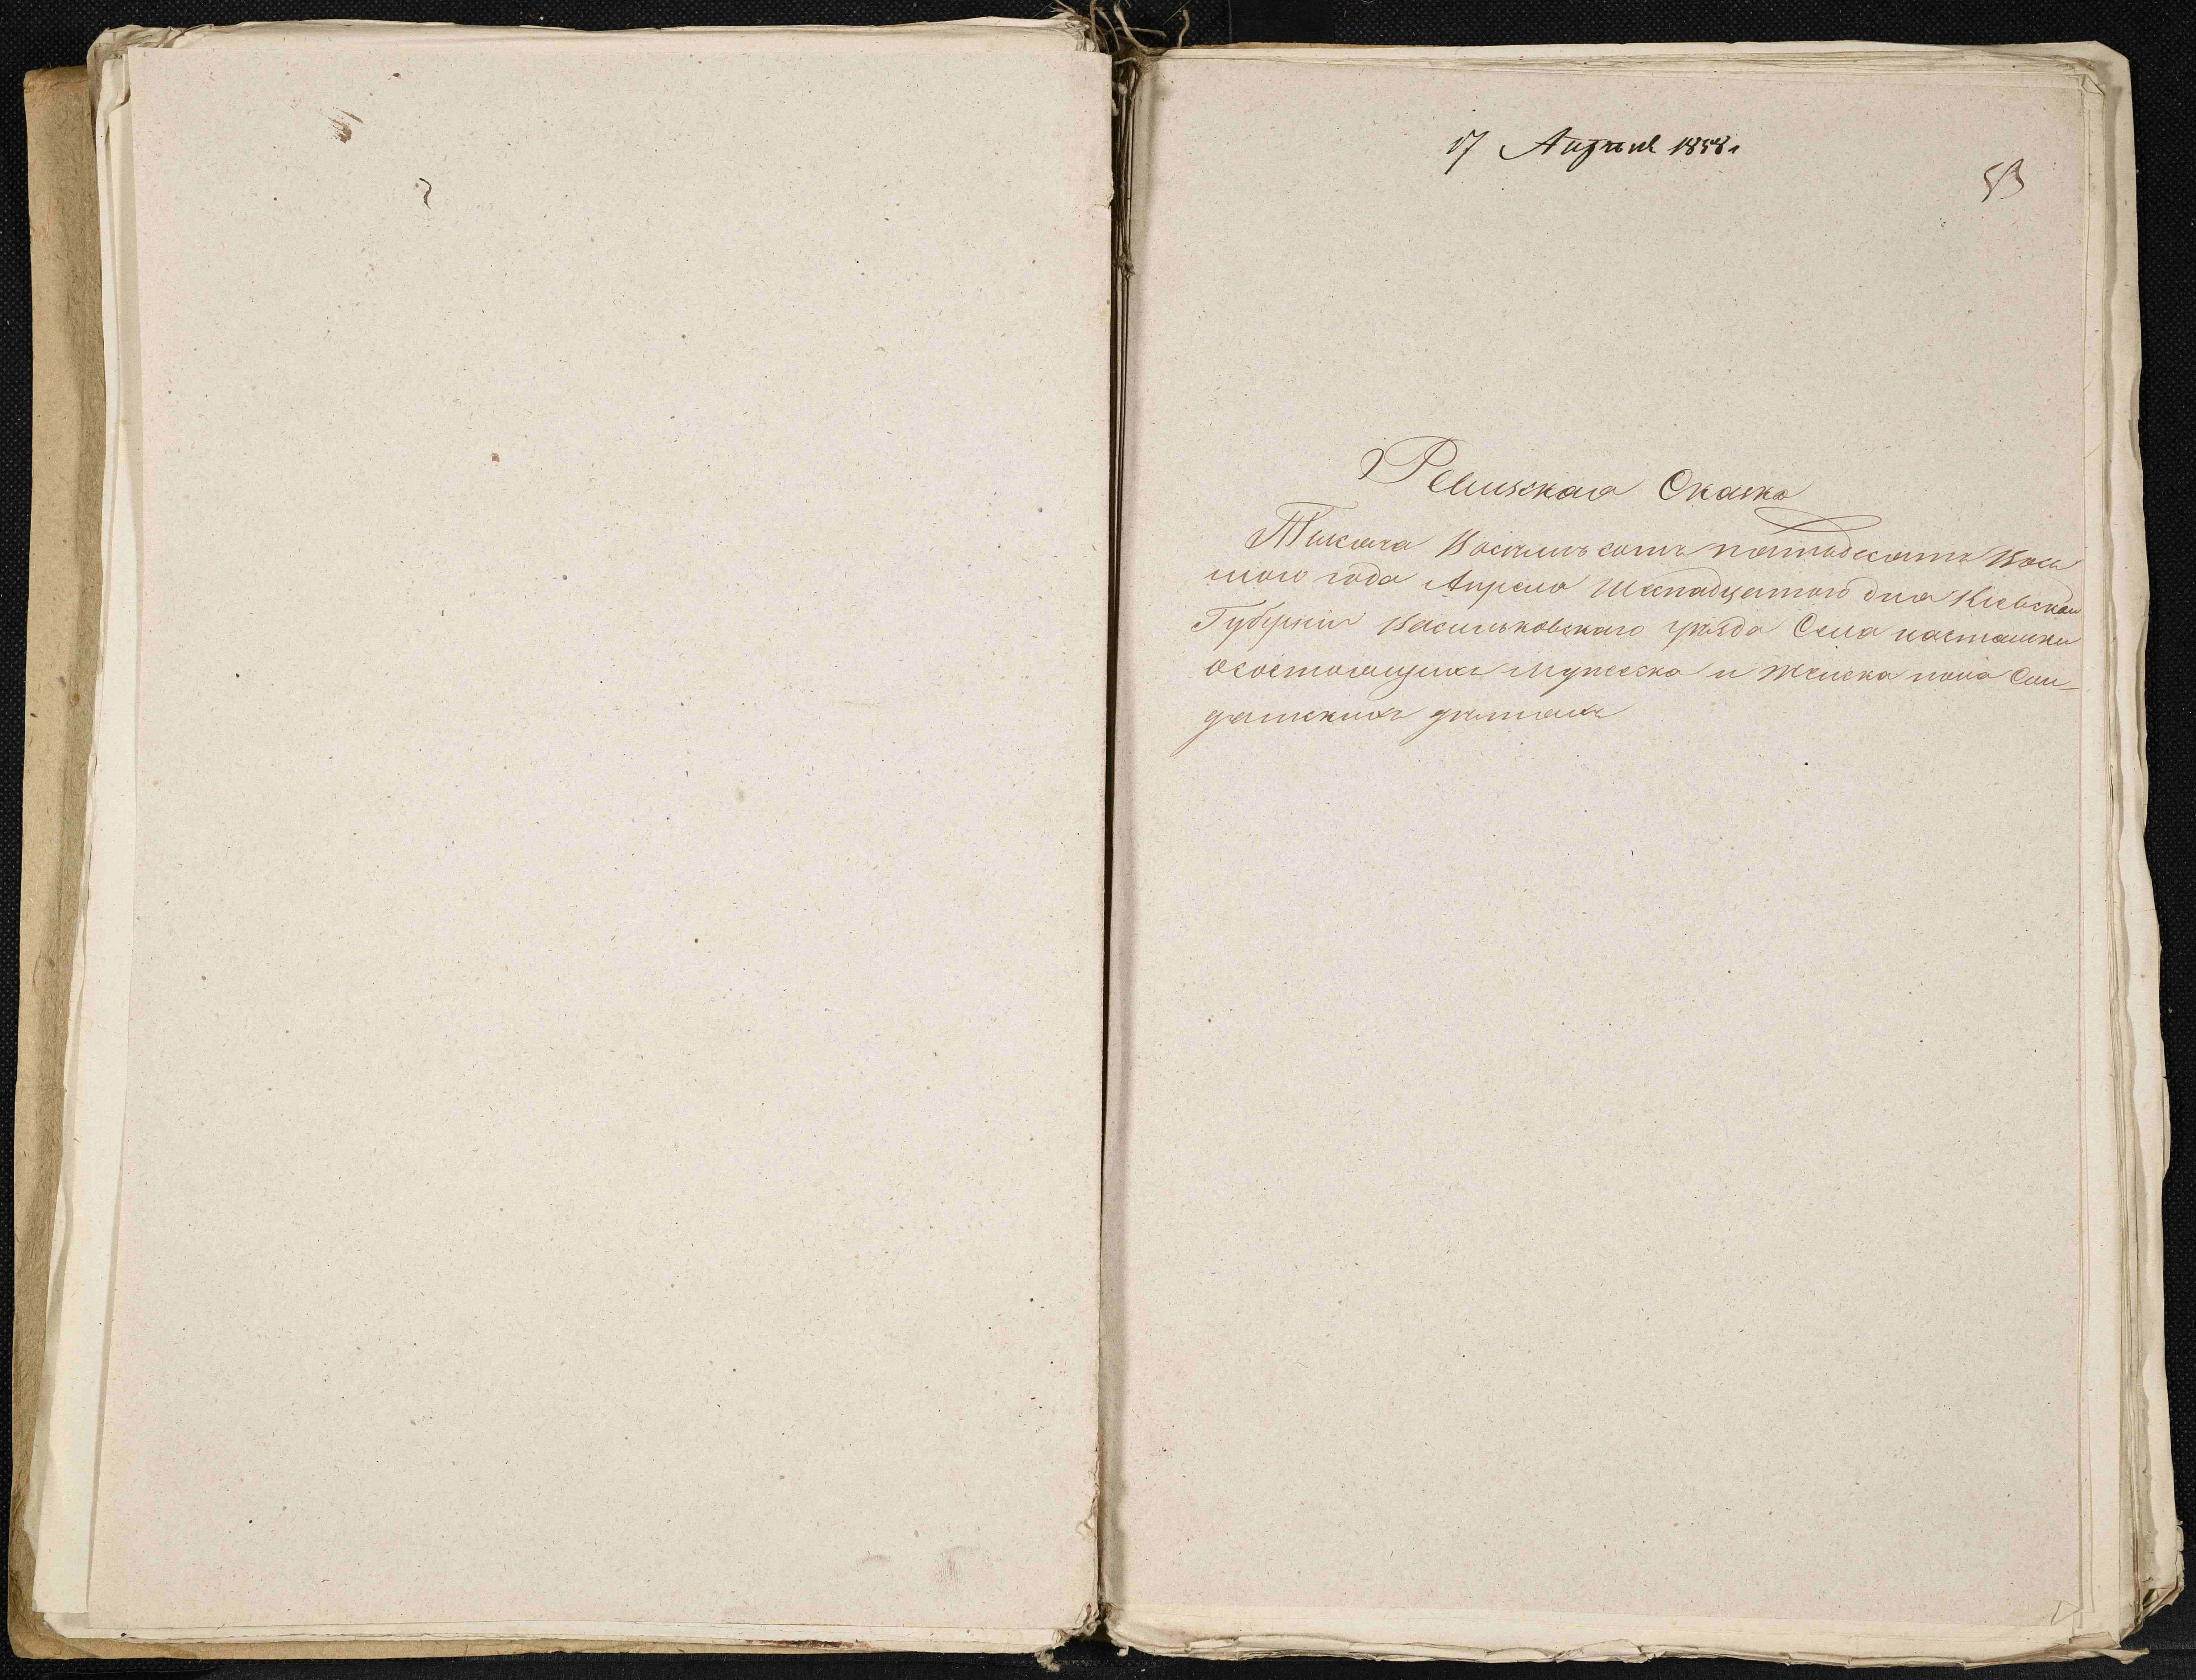 17 Апреля 1858 г
53
Ревизская Сказка
Тысяча Восемь сотъ пятьдесятъ Вось
мого года Апреля Шеснадцатого дня Киевской
Губернии Васильковскаго уезда Села Насташки
осостоящихъ Мужеска и Женска пола Сол-
датскихъ детяхъ